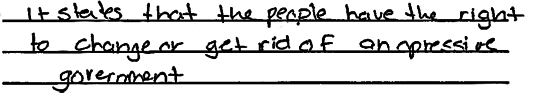 It states that the people have the right
to change or get rid of an opressive
government